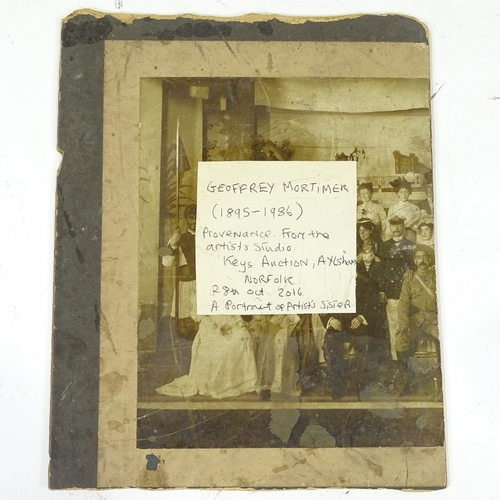 GEOFFREY MORTIMER
(1895-1986)
Provenance. From the
artists studio.
Keys Auction, Aylsham
NORFOLK
28th oct. 2016
A Portrait of Artist's SISTER